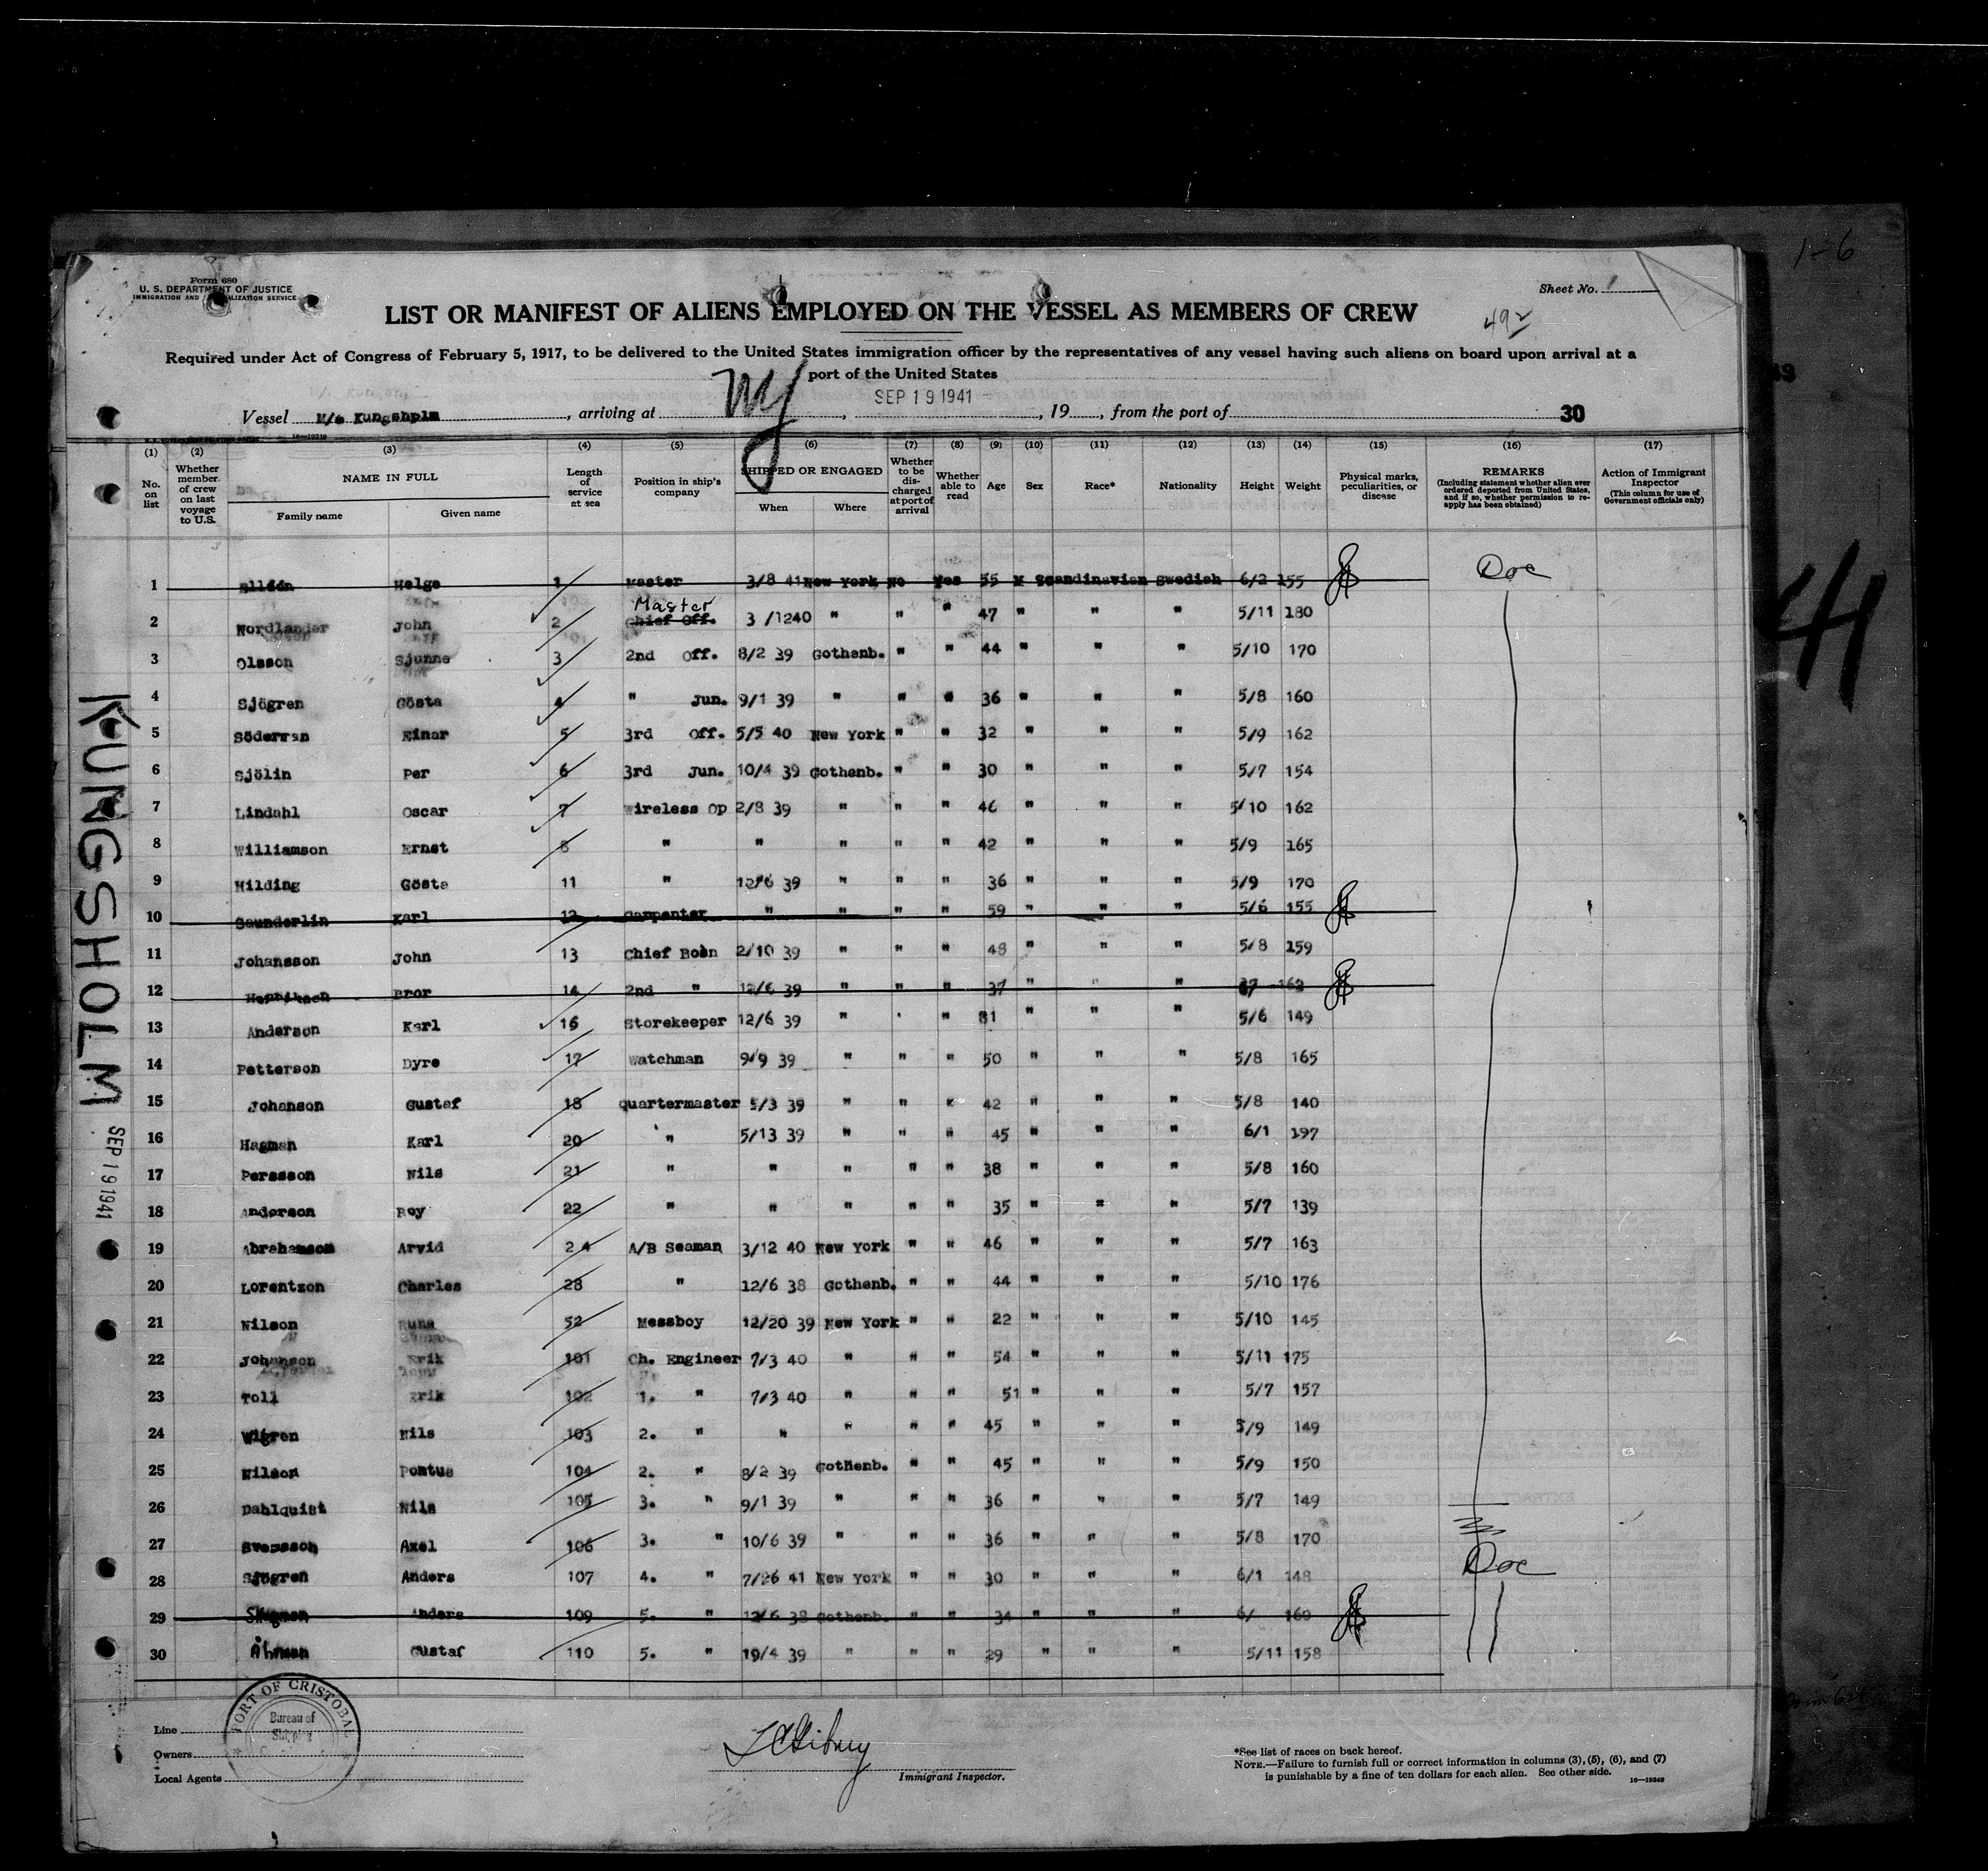 1-6
Form 680
U. S. DEPARTMENT OF JUSTICE
IMMIGRATION AND NATURALIZATION SERVICE
Sheet No. 1
LIST OR MANIFEST OF ALIENS EMPLOYED ON THE VESSEL AS MEMBERS OF CREW
492
Required under Act of Congress of February 5, 1917, to be delivered to the United States immigration officer by the representatives of any vessel having such aliens on board upon arrival at a
port of the United States
Vessel M/s Kungsholm, arriving at NY, SEP 19 1941, 19, from the port of 30
(1) (2) (3) (4) (5) (6) (7) (8) (9) (10) (11) (12) (13) (14) (15) (16) (17)
No. on list
Whether member of crew on last voyage to U.S.
NAME IN FULL
Family name
Given name
Length of service at sea
Position in ship's company
SHIPPED OR ENGAGED
When
Where
Whether to be discharged at port of arrival
Whether able to read
Age
Sex
Race*
Nationality
Height
Weight
Physical marks, peculiarities, or disease
REMARKS
(Including statement whether alien ever ordered deported from United States, and if so, whether permission to reapply has been obtained)
Action of Immigrant Inspector
(This column for use of Government officials only)
1 Helge 1 Master 3/8 41 New York No Yes 55 M Scandinavian Swedish 6/2 155 Doc
Master
2 Nordlander John 2 Chief Off. 3 /1240 " " " 47 " " " 5/11 180
3 Olsson Sjunne 3 2nd Off. 8/2 39 Gothenb. " " 44 " " " 5/10 170
4 Sjögren Gösta 4 " Jun. 9/1 39 " " " 36 " " " 5/8 160
5 Söderman Einar 5 3rd Off. 5/5 40 New York " " 32 " " " 5/9 162
6 Sjölin Per 6 3rd Jun. 10/4 39 Gothenb. " " 30 " " " 5/7 154
7 Lindahl Oscar 7 Wireless Op 2/8 39 " " " 46 " " " 5/10 162
8 Williamson Ernst 8 " " " " " 42 " " " 5/9 165
9 Hilding Gösta 11 " 12/6 39 " " " 36 " " " 5/9 170
10 Saunderlin Karl 12 Carpenter " " " " 59 " " " 5/6 155
11 Johansson John 13 Chief Boàn 2/10 39 " " " 48 " " " 5/8 159
12 Bror 14 2nd " 12/6 39 " " " 37 " " "
13 Anderson Karl 16 Storekeeper 12/6 39 " " " 31 " " " 5/6 149
14 Petterson Dyre 17 Watchman 9/9 39 " " " 50 " " " 5/8 165
15 Johanson Gustaf 18 quartermaster 5/3 39 " " " 42 " " " 5/8 140
16 Hagman Karl 20 " 5/13 39 " " " 45 " " " 6/1 197
17 Persson Nils 21 " " " " " 38 " " " 5/8 160
18 Anderson Roy 22 " " " " " 35 " " " 5/7 139
19 Abrahamson Arvid 24 A/B Seaman 3/12 40 New York " " 46 " " " 5/7 163
20 Lorentzon Charles 28 " 12/6 38 Gothenb. " " 44 " " " 5/10 176
21 Nilson Rune 52 Messboy 12/20 39 New York " " 22 " " " 5/10 145
22 Johanson Erik 101 Ch. Engineer 7/3 40 " " " 54 " " " 5/11 175
23 Toll Erik 102 1. " 7/3 40 " " " 51 " " " 5/7 157
24 Wigren Nils 103 2. " " " " " 45 " " " 5/9 149
25 Nilson Pontus 104 2. " 8/2 39 Gothenb. " " 45 " " " 5/9 150
26 Dahlquist Nils 105 3. " 9/1 39 " " " 36 " " " 5/7 149
27 Svensson Axel 106 3. " 10/6 39 " " " 36 " " " 5/8 170
28 Sjögren Anders 107 4. " 7/26 41 New York " " 30 " " " 6/1 148 Doc
29 Anders 109 5. " 12/6 38 Gothenb. " " 34 " " " 6/ 160
30 Åhman Gustaf 110 5. " 19/4 39 " " " 29 " " " 5/11 158
KUNGSHOLM
SEP 19 1941
41
PORT OF CRISTOBAL
Bureau of
Shipping
Line
Owners
Local Agents
Immigrant Inspector.
*See list of races on back hereof.
NOTE.—Failure to furnish full or correct information in columns (3), (5), (6), and (7)
is punishable by a fine of ten dollars for each alien. See other side.
16—19349